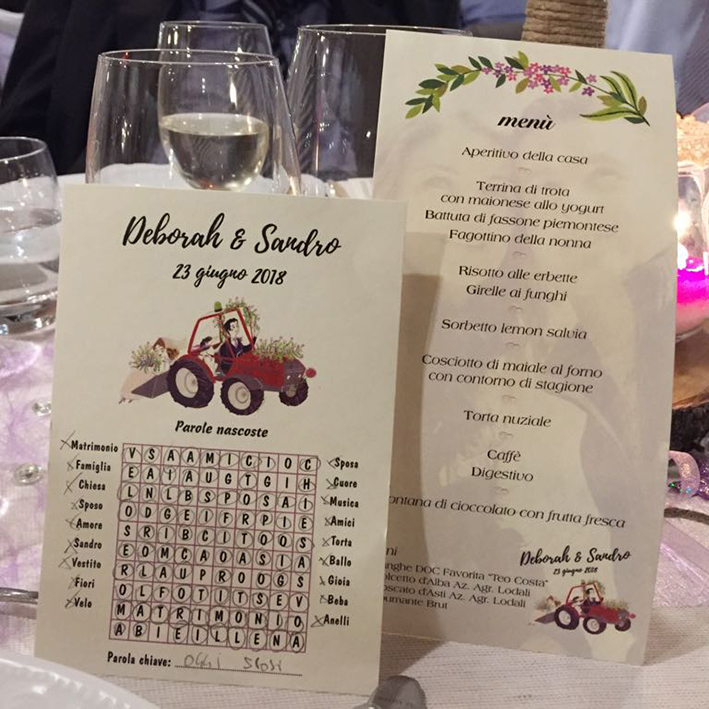 Deborah & Sandro
23 giugno 2018
Parole nascoste
Matrimonio
Famiglia
Chiesa
Sposo
Amore
Sandro
Vestito
Fiori
Velo
V S A A M I C I O C
E A I A U G T G I H
L N L B S P O S A I
O D G E I F R P I E
S R I B C I T O O S
E O M C A O A S I A
R L A U P R O O G S
O L F O T I T S E V
M A T R I M O N I O
A B I E I L L E N A
Sposa
Cuore
Musica
Amici
Torta
Ballo
Gioia
Beba
Anelli
Parola chiave: OGGI SPOSI
menù
Aperitivo della casa
Terrina di trota
con maionese allo yogurt
Battuta di fassone piemontese
Fagottino della nonna
Risotto alle erbette
Girelle ai funghi
Sorbetto lemon salvia
Cosciotto di maiale al forno
con contorno di stagione
Torta nuziale
Caffè
Digestivo
ontana di cioccolato con frutta fresca
ni
anghe DOC Favorita "Teo Costa"
olcetto d'Alba Az. Agr. Lodali
oscato d'Asti Az. Agr. Lodali
pumante Brut
Deborah & Sandro
23 giugno 2018